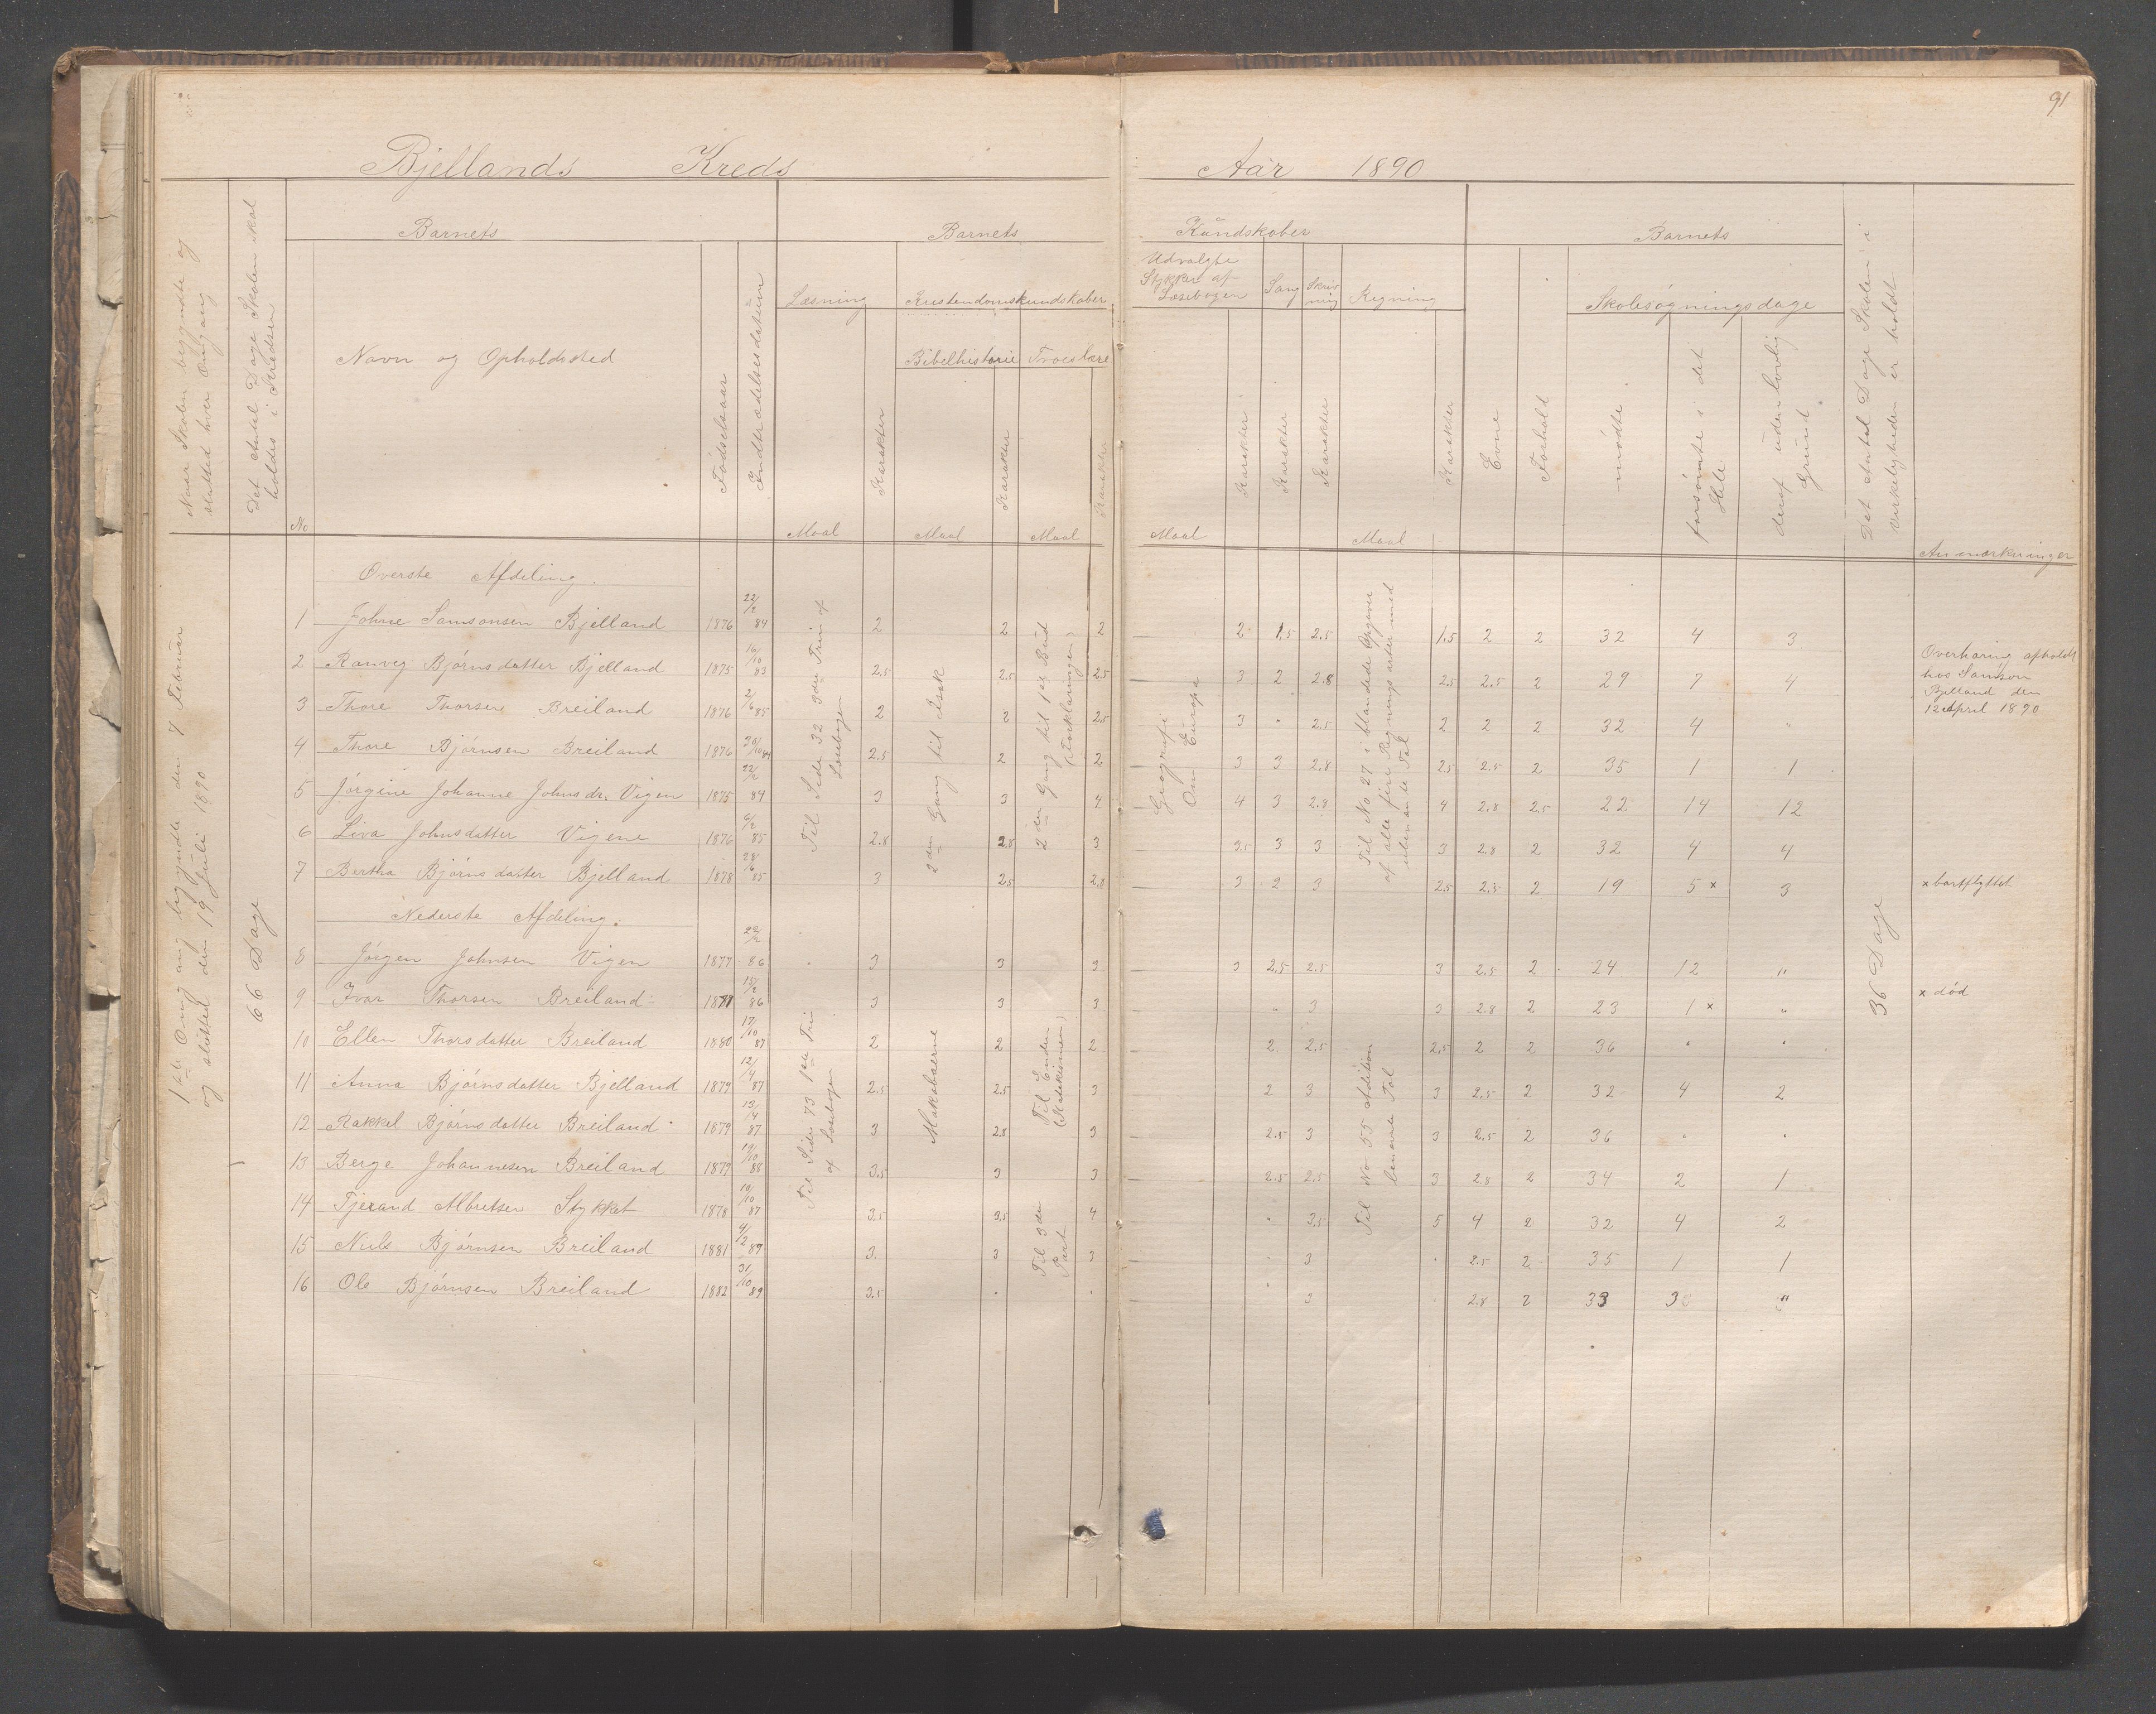 91
Bjellands Kreds Aar 1890
Naar Skolen begyndte og
sluttet hver Omgang
Det Antal Dage Skolen skal
holdes i Kredsen
No
Barnets
Navn og Opholdssted
Fødselsaar
Indtrædelsesdatum
Barnets
Læsning
Maal
Karakter
Kristendomskundskaber
Bibelhistorie
Maal
Karakter
Troeslære
Maal
Karakter
Kundskaber
Udvalgte
Stykker af
Læsebogen
Maal
Karakter
Sang
Karakter
Skriv
ning
Karakter
Regning
Maal
Karakter
Barnets
Evne
Forhold
Skolesøgningsdage
mødte
forsømte i det
Hele
deraf uden lovlig
Grund
Det Antal Dage Skolen i
Virkeligheden er holdt
Anmærkninger
1ste Omgang begyndte den 7 Februar
og sluttet den 19 Juli 1890
66 Dage
36 Dage
Øverste Afdeling.
1 Johne Samsonsen Bjelland 1876 22/2 84 2 2 2 2 1.5 2.5 1.5 2 2 32 4 3
2 Ranveg Bjørnsdatter Bjelland 1875 16/10 83 2.5 2.5 2.5 3 2 2.8 2.5 2.5 2 29 7 4
3 Thore Thorsen Breiland 1876 2/6 85 2 2 2.5 3 " 2.5 2 2 2 32 4 "
4 Thore Bjørnsen Breiland 1876 30/10 84 2.5 2 2 3 3 2.8 2.5 2.5 2 35 1 1
5 Jørgine Johanne Johnsdr. Vigen 1875 22/2 84 3 3 4 4 3 2.8 4 2.8 2.5 22 14 12
6 Liva Johnsdatter Vigene 1876 6/2 85 2.8 2.8 3 3.5 3 3 3 2.8 2 32 4 4
7 Bertha Bjørnsdatter Bjelland 1878 28/6 85 3 2.5 2.8 3 2 3 2.5 2.3 2 19 5 x 3
Til Side 32 3die Trin af
Læsebogen
2den Gang til Isak
2den Gang til 1ste Bud
(Forklaringen)
Geografi
Om Europa
Til No 27 i blandede Opgaver
af alle fire Regningsarter med
ubenævnte Tal
Overhøring afholdt
hos Samson
Bjelland den
12 April 1890
x bortflyttet
Nederste Afdeling.
8 Jørgen Johnsen Vigen 1877 22/2 86 3 3 3 3 2.5 2.5 3 2.5 2 24 12 "
9 Ivar Thorsen Breiland 1877 15/2 86 3 3 3 " 3 3 2.8 2 23 1 x "
10 Ellen Thorsdatter Breiland 1880 17/10 87 2 2 2 2 2.5 2.5 2 2 36 " "
11 Anna Bjørnsdatter Bjelland 1879 12/4 87 2.5 2.5 3 2 3 3 2.5 2 32 4 2
12 Rakkel Bjørnsdatter Breiland 1879 13/4 87 3 2.8 3 2.5 3 3 2.5 2 36 " "
13 Berge Johannesen Breiland 1879 19/10 88 3.5 3 3 2.5 2.5 3 2.8 2 34 2 1
14 Tjerand Albretsen Stykket 1878 10/10 87 3.5 3.5 4 " 3.5 5 4 2 32 4 2
15 Niels Bjørnsen Breiland 1881 4/2 89 3 3 3 " 3 " 2.5 2 35 1 1
16 Ole Bjørnsen Breiland 1882 31/10 89 3.5 " " " 3 " 2.8 2 33 3 "
Til Side 73 1ste Trin
af Læsebogen
Makebæerne
Til Enden
(Katekismen)
Til 3die
Part
Til No 55 Adition
benævnte Tal
x død